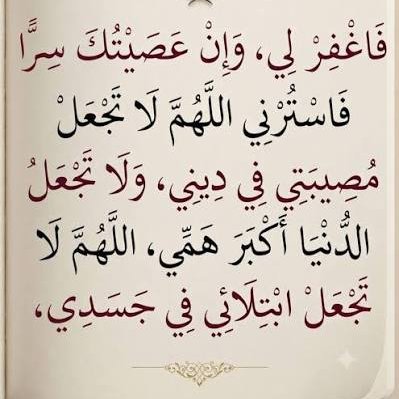 فَاغْفِرْ لِي، وَإِنْ عَصَيْتُكَ سِرًّا
فَاسْتُرْنِي اللَّهُمَّ لَا تَجْعَلْ
مُصِيبَتِي فِي دِينِي، وَلَا تَجْعَلُ
الدُّنْيَا أَكْبَرَ هَمِّي، اللَّهُمَّ لَا
تَجْعَلْ ابْتِلَائِي فِي جَسَدِي،